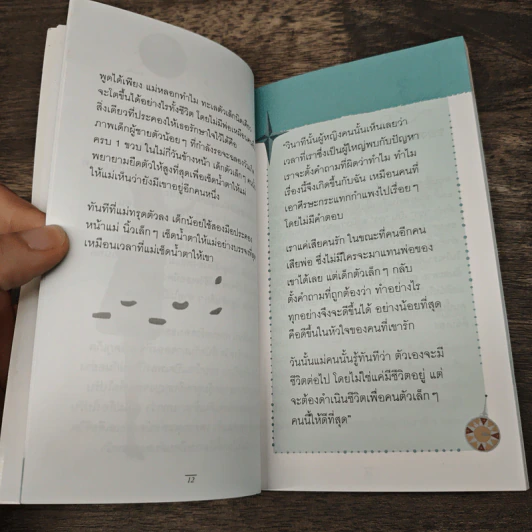 พูดได้เพียง แม่หลอกทำไม ทะเลตัวเล็กนิดเดียว
จะโตขึ้นได้อย่างไรทั้งชีวิต โดยไม่มีพ่อเหมือนคน
สิ่งเดียวที่ประคองให้เธอรักษาใจไว้ได้คือ
ภาพเด็กผู้ชายตัวน้อยๆ ที่กำลังรอจะฉลองวันเกิด
ครบ 1 ขวบ ในไม่กี่วันข้างหน้า เด็กตัวเล็กๆ
พยายามยืดตัวให้สูงที่สุดเพื่อเช็ดน้ำตาให้แม่
ให้แม่เห็นว่ายังมีเขาอยู่อีกคนหนึ่ง
ทันทีที่แม่ทรุดตัวลง เด็กน้อยใช้สองมือประคอง
หน้าแม่ นิ้วเล็กๆ เช็ดน้ำตาให้แม่อย่างบรรจงที่สุด
เหมือนเวลาที่แม่เช็ดน้ำตาให้เขา
12
"วินาทีนั้นผู้หญิงคนนั้นเห็นเลยว่า
เวลาที่เราซึ่งเป็นผู้ใหญ่พบกับปัญหา
เราจะตั้งคำถามที่ผิดว่าทำไม ทำไม
เรื่องนี้จึงเกิดขึ้นกับฉัน เหมือนคนที่
เอาศีรษะกระแทกกำแพงไปเรื่อยๆ
โดยไม่มีคำตอบ
เราแค่เสียคนรัก ในขณะที่คนอีกคน
เสียพ่อ ซึ่งไม่มีใครจะมาแทนพ่อของ
เขาได้เลย แต่เด็กตัวเล็กๆ กลับ
ตั้งคำถามที่ถูกต้องว่า ทำอย่างไร
ทุกอย่างจึงจะดีขึ้นได้ อย่างน้อยที่สุด
คือดีขึ้นในหัวใจของคนที่เขารัก
วันนั้นแม่คนนั้นรู้ทันทีว่า ตัวเองจะมี
ชีวิตต่อไป โดยไม่ใช่แค่มีชีวิตอยู่ แต่
จะต้องดำเนินชีวิตเพื่อคนตัวเล็กๆ
คนนี้ให้ดีที่สุด"